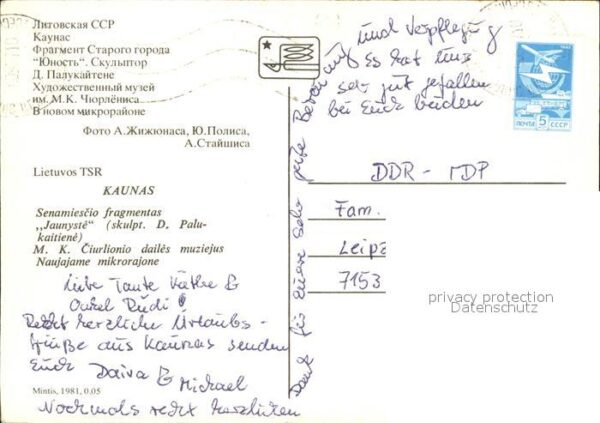 Литовская ССР
Каунас
Фрагмент Старого города
"Юность". Скульптор
Д. Палукайтене
Художественный музей
им. М.К. Чюрлёниса
В новом микрорайоне
Фото А.Жижюнаса, Ю.Полиса,
А.Стайшиса
Lietuvos TSR
KAUNAS
Senamiesčio fragmentas
„Jaunystė" (skulpt. D. Palu-
kaitienė)
M. K. Čiurlionio dailės muziejus
Naujajame mikrorajone
Liebe Tante Käthe &
Onkel Rudi!
Recht herzliche Urlaubs-
grüße aus Kaunas senden
Euch
Daiva & Michael
Mintis, 1981, 0.05
Nochmals recht herzlichen
Dank für Eure sehr gute Betreuung
und Verpflegung
Es hat uns
sehr gut gefallen
bei Euch beiden
ПОЧТА 5 СССР
DDR - ГДР
Fam.
Leipz
7153
privacy protection
Datenschutz